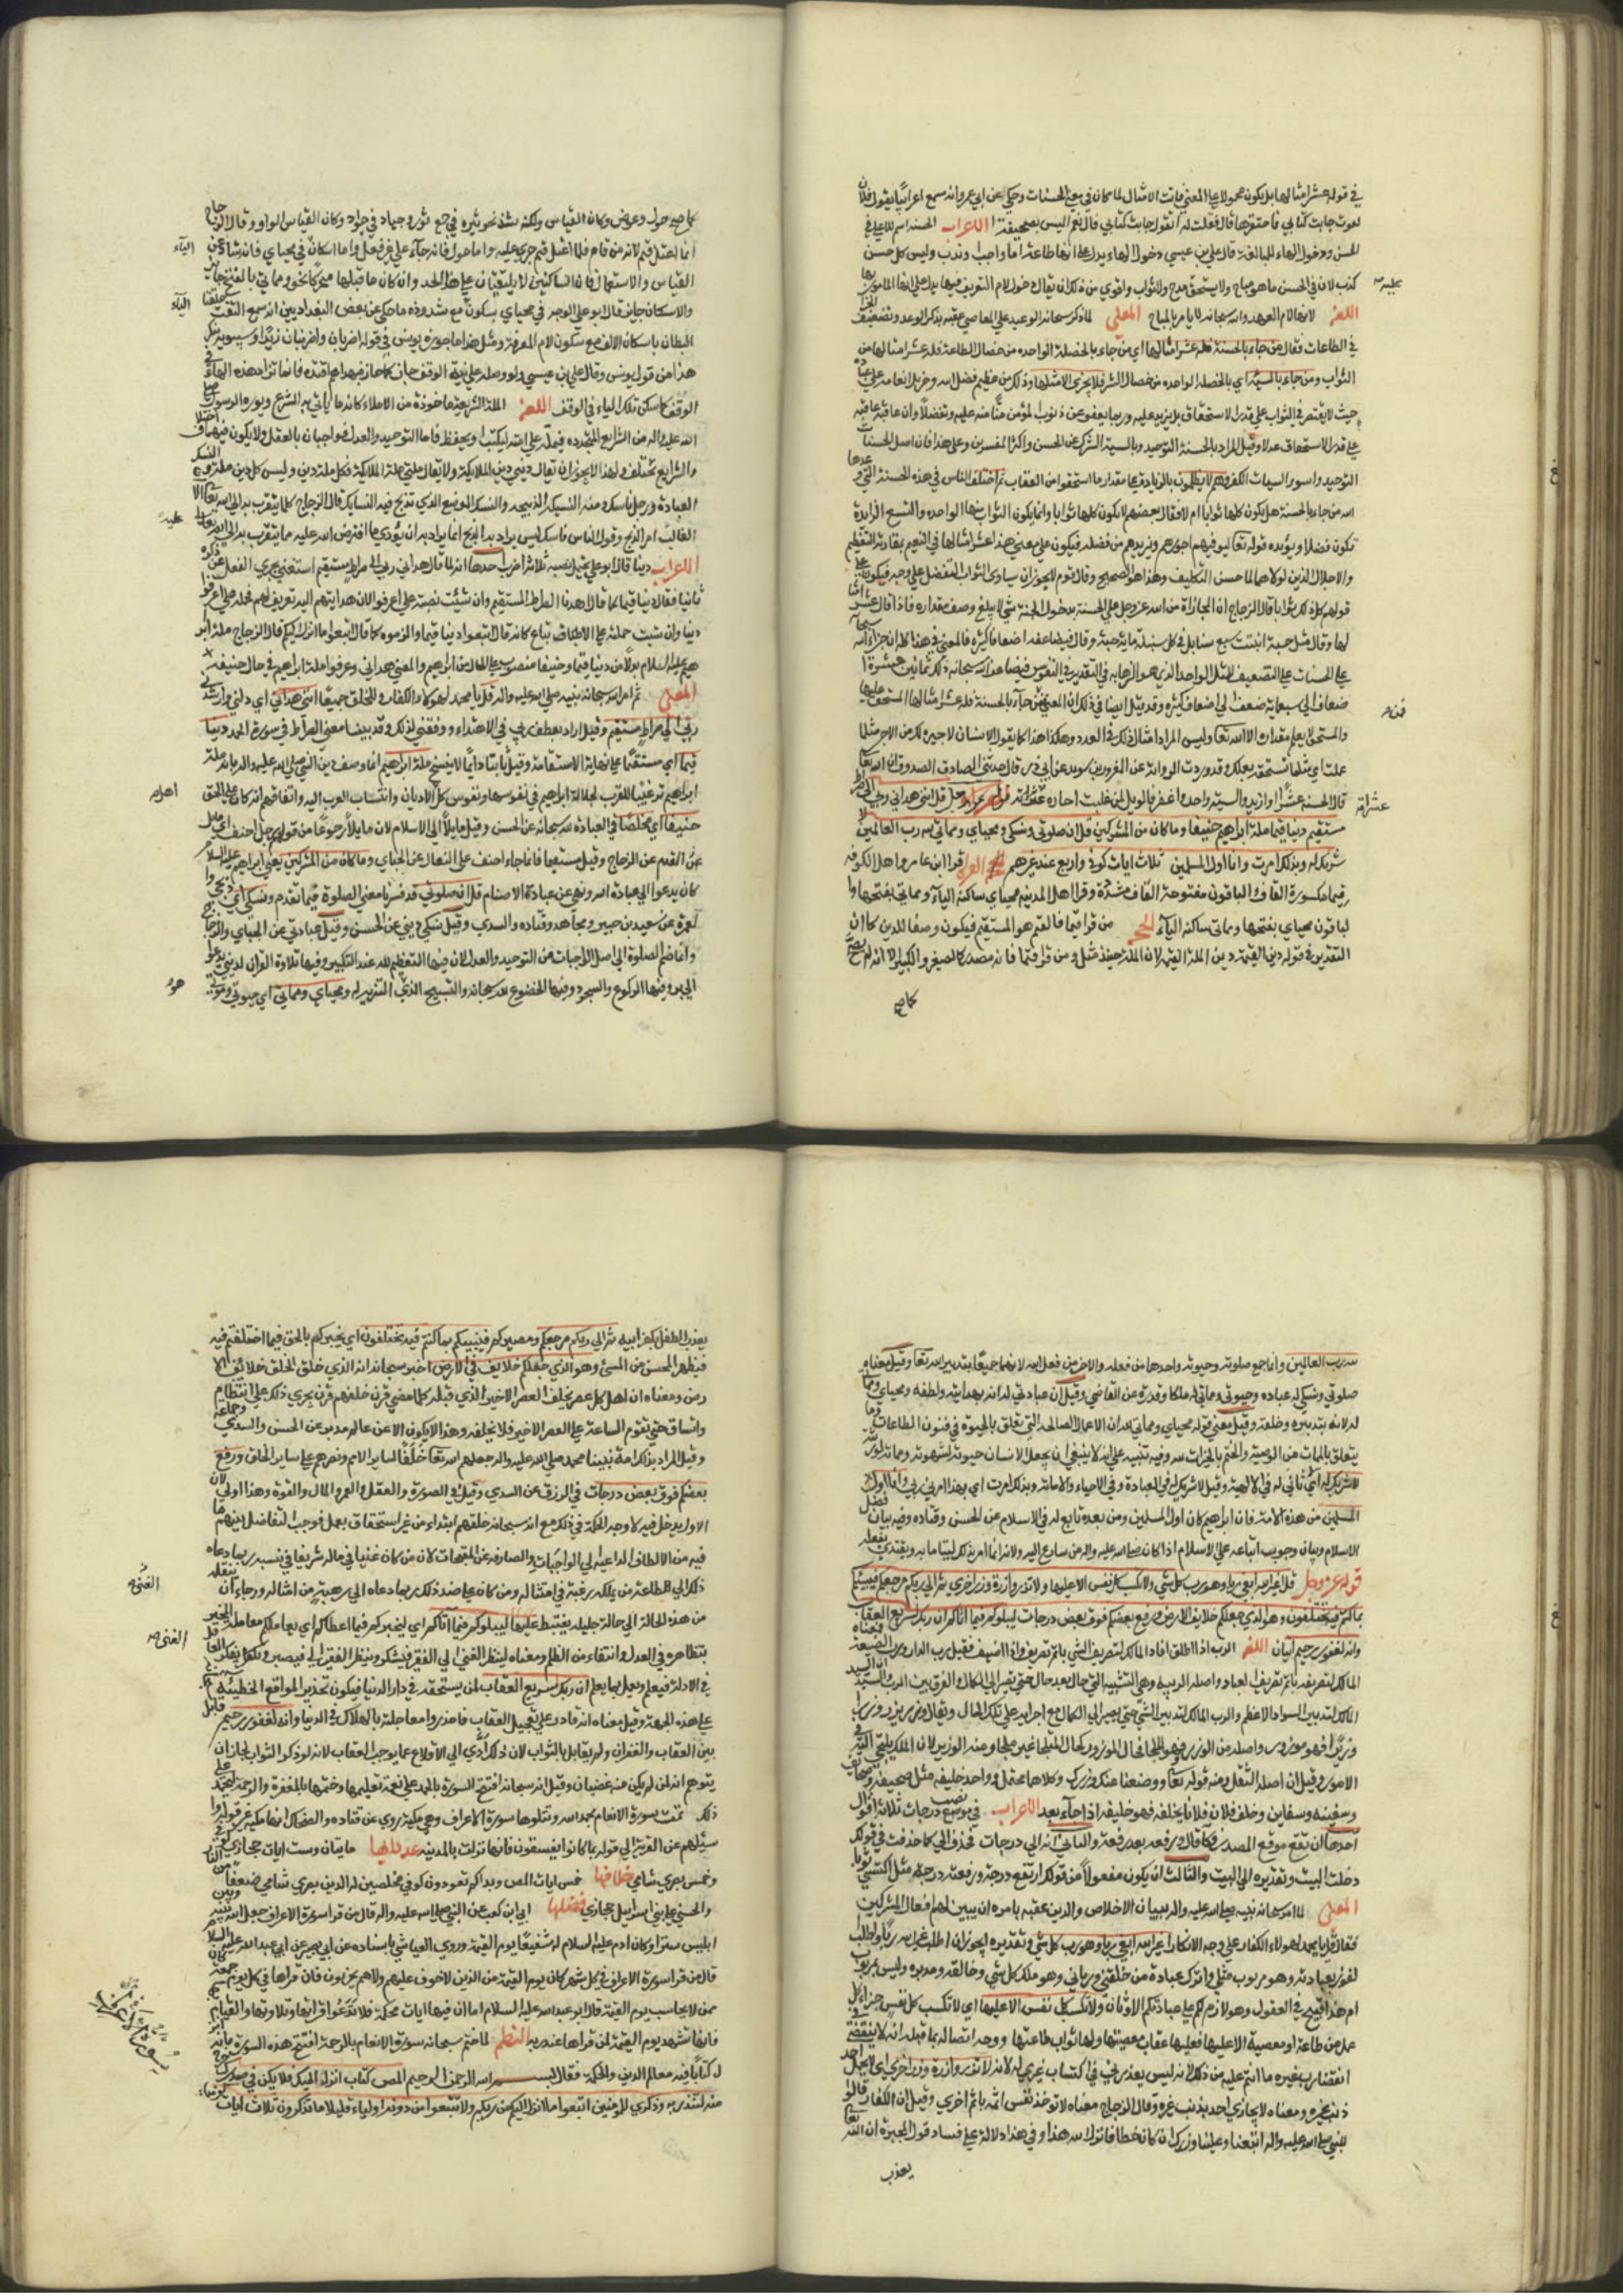 في قوله عشر امثالها بل يكون محمولا على المعنى فانث الامثال لما كان في معنى الحسنات وحكي عن ابي عمرو انه سمع اعرابيا يقول فلان
لغوب جاءته كتابي فاحتقرها قال فقلت له اتقول جاءته كتابي قال نعم اليس بصحيفة الاعراب الحسنة اسم للاعلى في
الحسن ودخول الهاء للمبالغة قال علي بن عيسى دخول الهاء يدل على انها طاعة اما واجب او ندب وليس كل حسن
كذلك لان في الحسن ما هو مباح ولا يستحق مدح ولا ثواب واقوى من ذلك ان يقال دخول لام التعريف فيها يدل على انها المامور بها
اللغة لانه لام العهد والله سبحانه لا يامر بالمباح المعنى لما ذكر سبحانه الوعيد على المعاصي عقبه بذكر الوعد وتضعيف
في الطاعات فقال من جاء بالحسنة فله عشر امثالها اي من جاء بالخصلة الواحدة من خصال الطاعة فله عشر امثالها من
الثواب ومن جاء بالسيئة اي بالخصلة الواحدة من خصال الشر فلا يجزى الا مثلها وذلك من عظيم فضل الله وجزيل انعامه على عباده
حيث لا يقتصر في الثواب على قدر الاستحقاق بل يزيد عليه وربما يعفو عن ذنوب المؤمن منا منه عليه وتفضلا وان عاقبه عاقبه
على قدر الاستحقاق عدلا وقيل المراد بالحسنة التوحيد وبالسيئة الشرك عن الحسن واكثر المفسرين وعلى هذا فان اصل الحسنات
التوحيد واسوء السيئات الكفر وهم لا يظلمون بالزيادة على مقدار ما استحقوا من العقاب ثم اختلف الناس في هذه الحسنة التي وعدها
الله من جاء بالحسنة هل يكون كلها ثوابا ام لا فقال بعضهم لا يكون كلها ثوابا وانما يكون الثواب منها الواحدة والتسع الزايدة
تكون فضلا ويؤيده قوله تعالى ليوفيهم اجورهم ويزيدهم من فضله فيكون على معنى هذا عشر امثالها في النعيم بمقارنة التعظيم
والاجلال الذين لولاهما لما حسن التكليف وهذا هو الصحيح وقال قوم لا يجوز ان يساوي الثواب التفضل على وجه فيكون على
قولهم كل ذلك ثوابا قال الزجاج ان المجازاة من الله عز وجل على الحسنة بدخول الجنة شي لا يبلغ وصف مقداره فاذا قال عشر امثا
لها وقال كمثل حبة انبتت سبع سنابل في كل سنبلة ماية حبة وقال فيضاعفه له اضعافا كثيرة فالمعنى في هذا كله ان جزاء الله
على الحسنات على التضعيف للمثل الواحد الذي هو النهاية في التقدير في النفوس فيضاعف الله سبحانه ذلك بما بين عشرة ا
ضعاف الى سبعماية ضعف الى اضعاف كثيرة وقد قيل ايضا في ذلك ان المعنى من جاء بالحسنة فله عشر امثالها المستحق عليها
والمستحق لا يعلم مقداره الا الله تعالى وليس المراد امثال ذلك في العدد وهكذا هذا كما يقول الانسان لاجيره لك من الاجر مثل ما
عملت اي مثل ما تستحقه بعملك وقد وردت الرواية عن المعرور بن سويد عن ابي ذر قال حدثني الصادق الصدوق ان الله تعالى
قال الحسنة عشر او ازيد والسيئة واحدة او اغفر فالويل لمن غلبت احاده عشراته قوله عز وجل قل انني هداني ربي الى صراط
مستقيم دينا قيما ملة ابراهيم حنيفا وما كان من المشركين قل ان صلوتي ونسكي ومحياي ومماتي لله رب العالمين لا
شريك له وبذلك امرت وانا اول المسلمين ثلاث ايات كوفي واربع عند غيرهم القراءة قرا ابن عامر واهل الكوفة
قيما مكسورة القاف والباقون مفتوحة القاف مشددة وقرا اهل المدينة محياي ساكنة الياء ومماتي بفتحها وا
لباقون محياي بفتحها ومماتي ساكنة الياء الحجة من قرا قيما فالقيم هو المستقيم فيكون وصفا للدين كما ان
التقدير في قوله دين القيمة دين الملة القيمة لان الملة حينئذ مثل ومن قرا قيما فانه مصدر كالصغر والكبر الا انه لم يصح
كما صح
عشراته
كما صح حول وعوض وكان القياس ولكنه شذ نحو ثيرة في جمع ثور وجياد في جواد وكان القياس الواو وقال الزجاج
انما اعتل قيم لانه من قام فلما اعتل قيم جرى عليه واما حول فانه جاء على غير فعل واما اسكان في محياي فانه شاذ عن
القياس والاستعمال فان الساكنين لا يلتقيان على هذا الحد وان كان ما قبلها متحركا نحو ومماتي بالفتح جايز
والاسكان جايز قال ابو علي الوجه في محياي بسكون مع شذوذه ما حكى عن بعض البغداديين انه سمع التقت حلقتا
البطان باسكان الالف مع سكون لام المعرفة ومثل هذا ما جوزه يونس في قوله اضربان واضربنان زيدا وسيبويه ينكر
هذا من قول يونس وقال علي بن عيسى ولو وصله على نية الوقف جاز كما جاز فبهداهم اقتده فانما تزاد هذه الهاء في
الوقف كما يسكن تلك الياء في الوقف اللغة الملة الشريعة ماخوذة من الاملاء كانه ما ياتي به الشرع ويورده الرسول صلى
الله عليه واله من الشرايع المتجددة فيمله على امته ليكتب او يحفظ فاما التوحيد والعدل فواجبان بالعقل ولا يكون فيهما اختلاف
والشرايع تختلف ولهذا لا يجوز ان يقال ديني دين الملايكة ولا يقال ملتي ملة الملايكة فكل ملة دين وليس كل دين ملة والنسك
العبادة ورجل ناسك ومنه النسيكة الذبيحة والنسك الموضع الذي تذبح فيه النسايك قال الزجاج كلما يتقرب به الى الله تعالى الا
الغالب امر الذبح وقول الناس فلان ناسك ليس يراد به الذبح انما يراد به ان يؤدي ما افترض الله عليه مما يتقرب به الى الله تعالى
الاعراب دينا قال ابو علي يحتمل نصبه ثلاثة اضرب احدها انه لما قال هداني ربي الى صراط مستقيم استغني بجري الفعل عن ذكره
ثانيا فقال دينا قيما كما قال اهدنا الصراط المستقيم وان شئت نصبته على اعرفوا لان هدايتهم اليه تعريف لهم فحمله على اعرفوا
دينا وان شئت حملته على الاتباع كانه قال اتبعوا دينا قيما والزموه كما قال اتبعوا ما انزل اليكم قال الزجاج ملة ابر
هيم عليه السلام بدلا من دينا قيما وحنيفا منصوب على الحال من ابراهيم والمعنى هداني وعرفوا ملة ابراهيم في حال حنيفية
المعنى ثم امر الله سبحانه نبيه صلى الله عليه واله قل يا محمد لهؤلاء الكفار وللخلق جميعا انني هداني اي دلني وارشدني
ربي الى صراط مستقيم وقيل اراد بعطف ربي في الاهتداء ووفقني لذلك وقد بينا معنى الصراط في سورة الحمد دينا
قيما اي مستقيما على نهاية الاستقامة وقيل ثابتا دايما لا ينسخ ملة ابراهيم انما وصف دين النبي صلى الله عليه واله بانه ملة
ابراهيم ترغيبا للعرب لجلالة ابراهيم في نفوسها ونفوس كل الاديان وانتساب العرب اليه واتفاقهم انه كان على الحق
حنيفا اي مخلصا في العبادة لله سبحانه عن الحسن وقيل مايلا الى الاسلام لان مايلا رجوعا من قولهم رجل احنف اي مايل
عن القدم عن الزجاج وقيل مستقيما فانما جاء احنف على التفال عن الجبائي وما كان من المشركين يعني ابراهيم عليه السلام
كان يدعوا الى عبادة الله وينهى عن عبادة الاصنام قل ان صلوتي قد فسرنا معنى الصلوة فيما تقدم ونسكي اي ذبحي وا
لعمرة عن سعيد بن جبير ومجاهد وقتادة والسدي وقيل نسكي ديني عن الحسن وقيل عبادتي عن الجبائي والزجاج
وانما ضم الصلوة الى اصل الواجبات من التوحيد والعدل لان فيها التعظيم لله عند التكبير وفيها تلاوة القران الذي يدعو
الى البر وفيها الركوع والسجود وفيها الخضوع لله سبحانه والتسبيح الذي التنزيه له ومحياي ومماتي اي حيوتي وموتي
الياء
الياء
عليه
اهله
هو
لله رب العالمين وانما جمع صلوته وحيوته واحدها من فعله والاخر من فعل الله لانهما جميعا بتدبير الله تعالى وقيل معناه
صلوتي ونسكي له عبادة وحيوتي ومماتي له ملكا وقدرة عن القاضي وقيل ان عبادتي له لانه بهدايته ولطفه ومحياي ومماتي
له لانه بتدبيره وخلقه وقيل معنى قوله محياي ومماتي لله ان الاعمال الصالحة التي تتعلق بالحيوة في فنون الطاعات وما
يتعلق بالممات من الوصية والختم بالخيرات لله وفيه تنبيه على انه لا ينبغي ان يجعل الانسان حيوته لشهوته ومماته لورثته
لا شريك له اي لا ثاني له في الالهية وقيل لا شريك له في العبادة وفي الاحياء والاماتة وبذلك امرت اي بهذا امرني ربي وانا اول
المسلمين من هذه الامة فان ابراهيم كان اول المسلمين ومن بعده تابع له في الاسلام عن الحسن وقتادة وفيه بيان فضل
الاسلام وبيان وجوب اتباعه على الاسلام اذا كان صلى الله عليه واله من سارع اليه ولانه انما امر بذلك ليتاسى به ويقتدى بفعله
قوله عز وجل قل اغير الله ابغي ربا وهو رب كل شي ولا تكسب كل نفس الا عليها ولا تزر وازرة وزر اخرى ثم الى ربكم مرجعكم فينبئكم
بما كنتم فيه تختلفون وهو الذي جعلكم خلايف الارض ورفع بعضكم فوق بعض درجات ليبلوكم فيما اتاكم ان ربك سريع العقاب
وانه لغفور رحيم ايتان اللغة الرب اذا اطلق افاد المالك لتصريف الشي باتم تصريف واذا اضيف فقيل رب الدار ورب الضيعة فمعناه
المالك لتصريفه باتم تصريف العباد واصله التربية وهي التنشية حالا بعد حال حتى يصير الى الكمال والفرق بين الرب والسيد ان السيد
المالك لتدبير السواد الاعظم والرب المالك لتدبير الشي حتى يصير الى الكمال مع اجرايه على تلك الحال ويقال وزر يزر وزرا
وزرا فهو موزور واصله من الوزر فهو الملجا فحال الموزور كحال الملتجئ الى غير ملجا ومنه الوزير لان الملك يلتجئ اليه في
الامور وقيل ان اصله الثقل ومنه قوله تعالى ووضعنا عنك وزرك وكلاهما محتمل وواحد الخلايف خليفة مثل صحيفة وصحايف
وسفينة وسفاين وخلف فلان فلانا يخلفه فهو خليفة اذا جاء بعده الاعراب في نصب درجات ثلاثة اقوال
احدها ان يقع موقع المصدر فكانه قال رفعة بعد رفعة والثاني انه الى درجات فحذف الى كما حذفت في قولك
دخلت البيت وتقديره الى البيت والثالث ان يكون مفعولا من قولك ارتفع درجة ورفعته درجة مثل اكتسى ثوبا
المعنى لما امر سبحانه نبيه صلى الله عليه واله ببيان الاخلاص والدين عقبه بامره ان يبين لهم فعال المشركين
فقال قل يا محمد لهولاء الكفار على وجه الانكار اغير الله ابغي ربا وهو رب كل شي وتقديره ايجوز ان اطلب غير الله ربا واطلب
الفوز بعبادته وهو مربوب مثلي واترك عبادة من خلقني ورباني وهو ملك كل شي وخالقه ومدبره وليس بمربوب
ام هذا قبيح في العقول وهو لازم لكم على عبادتكم الاوثان ولا تكسب كل نفس الا عليها اي لا تكسب كل نفس جزاء كل
عمل من طاعة او معصية الا عليها فعليها عقاب معصيتها ولها ثواب طاعتها ووجه اتصاله بما قبله انه لا ينفعني في
ابتغاء رب غيره ما انتم عليه من ذلك لانه ليس بعذر لي في اكتساب غيري له لانه لا تزر وازرة وزر اخرى اي لا يحمل احد
ذنب غيره ومعناه لا يجازى احد بذنب غيره وقال الزجاج معناه لا توخذ نفس اثمة باثم اخرى وقيل ان الكفار قالوا
للنبي صلى الله عليه واله اتبعنا وعلينا وزرك ان كان خطا فانزل الله هذا وفي هذا دلالة على فساد قول المجبرة ان الله تعالى
يعذب
يعذب الطفل بكفر ابيه ثم الى ربكم مرجعكم ومصيركم فينبئكم بما كنتم فيه تختلفون اي يخبركم بالحق فيما اختلفتم فيه
فيظهر المحسن من المسئ وهو الذي جعلكم خلايف في الارض اخبر سبحانه انه الذي خلق الخلق خلايف الا
رض ومعناه ان اهل كل عصر يخلف العصر الاخير الذي قبله كلما مضى قرن خلفهم قرن يجري ذلك على انتظام
واتساق حتى تقوم الساعة على العصر الاخير فلا يخلفه وهذا لا يكون الا عن عالم مدبر عن الحسن والسدي وجماعة
وقيل المراد بذلك امة نبينا محمد صلى الله عليه واله جعلهم الله تعالى خلفا لساير الامم ونصرهم على ساير الخلق ورفع
بعضكم فوق بعض درجات في الرزق عن السدي وقيل في الصورة والعقل والعمر والمال والقوة وهذا اولى لان
الاول يدخل فيه لا وجه الحكمة في ذلك مع انه سبحانه خلقهم ابتداء من غير استحقاق بعمل فوجب التفاضل بينهم ما
فيه من الالطاف الداعية الى الواجبات والصارفة عن المقبحات لان من كان غنيا في ماله شريفا في نسبه ربما دعاه
ذلك الى الطاعة من يملكه رغبة في امتثاله ومن كان على ضد ذلك ربما دعاه الى رهبة من امثاله ورجاء ان ينقله
من هذه الحالة الى حالة جليلة يغتبط عليها ليبلوكم فيما اتاكم اي ليختبركم فيما اعطاكم اي يعاملكم معاملة المختبر
بتظاهره في العدل وانتفاء من الظلم ومعناه لينظر الغني الى الفقير فيشكر وينظر الفقير الى فيصبر ويفكر العاقل
في الادلة فيعلم ويعمل بما يعلم ان ربك سريع العقاب لمن يستحقه في دار الدنيا فيكون تحذير المواقع الخطيئة
على هذه الجهة وقيل معناه انه قادر على تعجيل العقاب فاحذروا معاجلته بالهلاك في الدنيا وانه لغفور رحيم قابل
بين العقاب والغفران ولم يقابل بالثواب لان ذلك ادى الى الاقلاع عما يوجب العقاب لانه لو ذكر الثواب لجاز ان
يتوهم انه لمن لم يكن منه عصيان وقيل انه سبحانه افتتح السورة بالحمد على نعمه تعليما وختمها بالمغفرة والرحمة ليحمد على
ذلك تمت سورة الانعام بحمد الله وتتلوها سورة الاعراف وهي مكية روي عن قتادة والضحاك انها مكية غير قوله وا
سئلهم عن القرية الى قوله بما كانوا يفسقون فانها نزلت بالمدينة عدد ايها مايتان وست ايات حجازي كوفي
وخمس بصري شامي خلافها خمس ايات المص وبداكم تعودون كوفي مخلصين له الدين بصري شامي ضعفا من النار
والحسنى على بني اسرايل حجازي فضلها ابي بن كعب عن النبي صلى الله عليه واله قال من قرا سورة الاعراف جعل الله بينه وبين
ابليس سترا وكان ادم عليه السلام له شفيعا يوم القيمة وروى العياشي باسناده عن ابي بصير عن ابي عبد الله عليه السلام
قال من قرا سورة الاعراف في كل شهر كان يوم القيمة من الذين لا خوف عليهم ولا هم يحزنون فان قراها في كل يوم جمعة كان
ممن لا يحاسب يوم القيمة قال ابو عبد الله عليه السلام اما ان فيها ايات محكمة فلا تدعوا قراتها وتلاوتها والقيام بها
فانها تشهد يوم القيمة لمن قراها عند ربه النظم لما ختم سبحانه سورة الانعام بالرحمة افتتح هذه السورة بانه انزل
له كتابا فيه معالم الدين والحكمة فقال بسم الله الرحمن الرحيم المص كتاب انزل اليك فلا يكن في صدرك حرج
منه لتنذر به وذكرى للمؤمنين اتبعوا ما انزل اليكم من ربكم ولا تتبعوا من دونه اولياء قليلا ما تذكرون ثلاث ايات
الغنى
الغنى